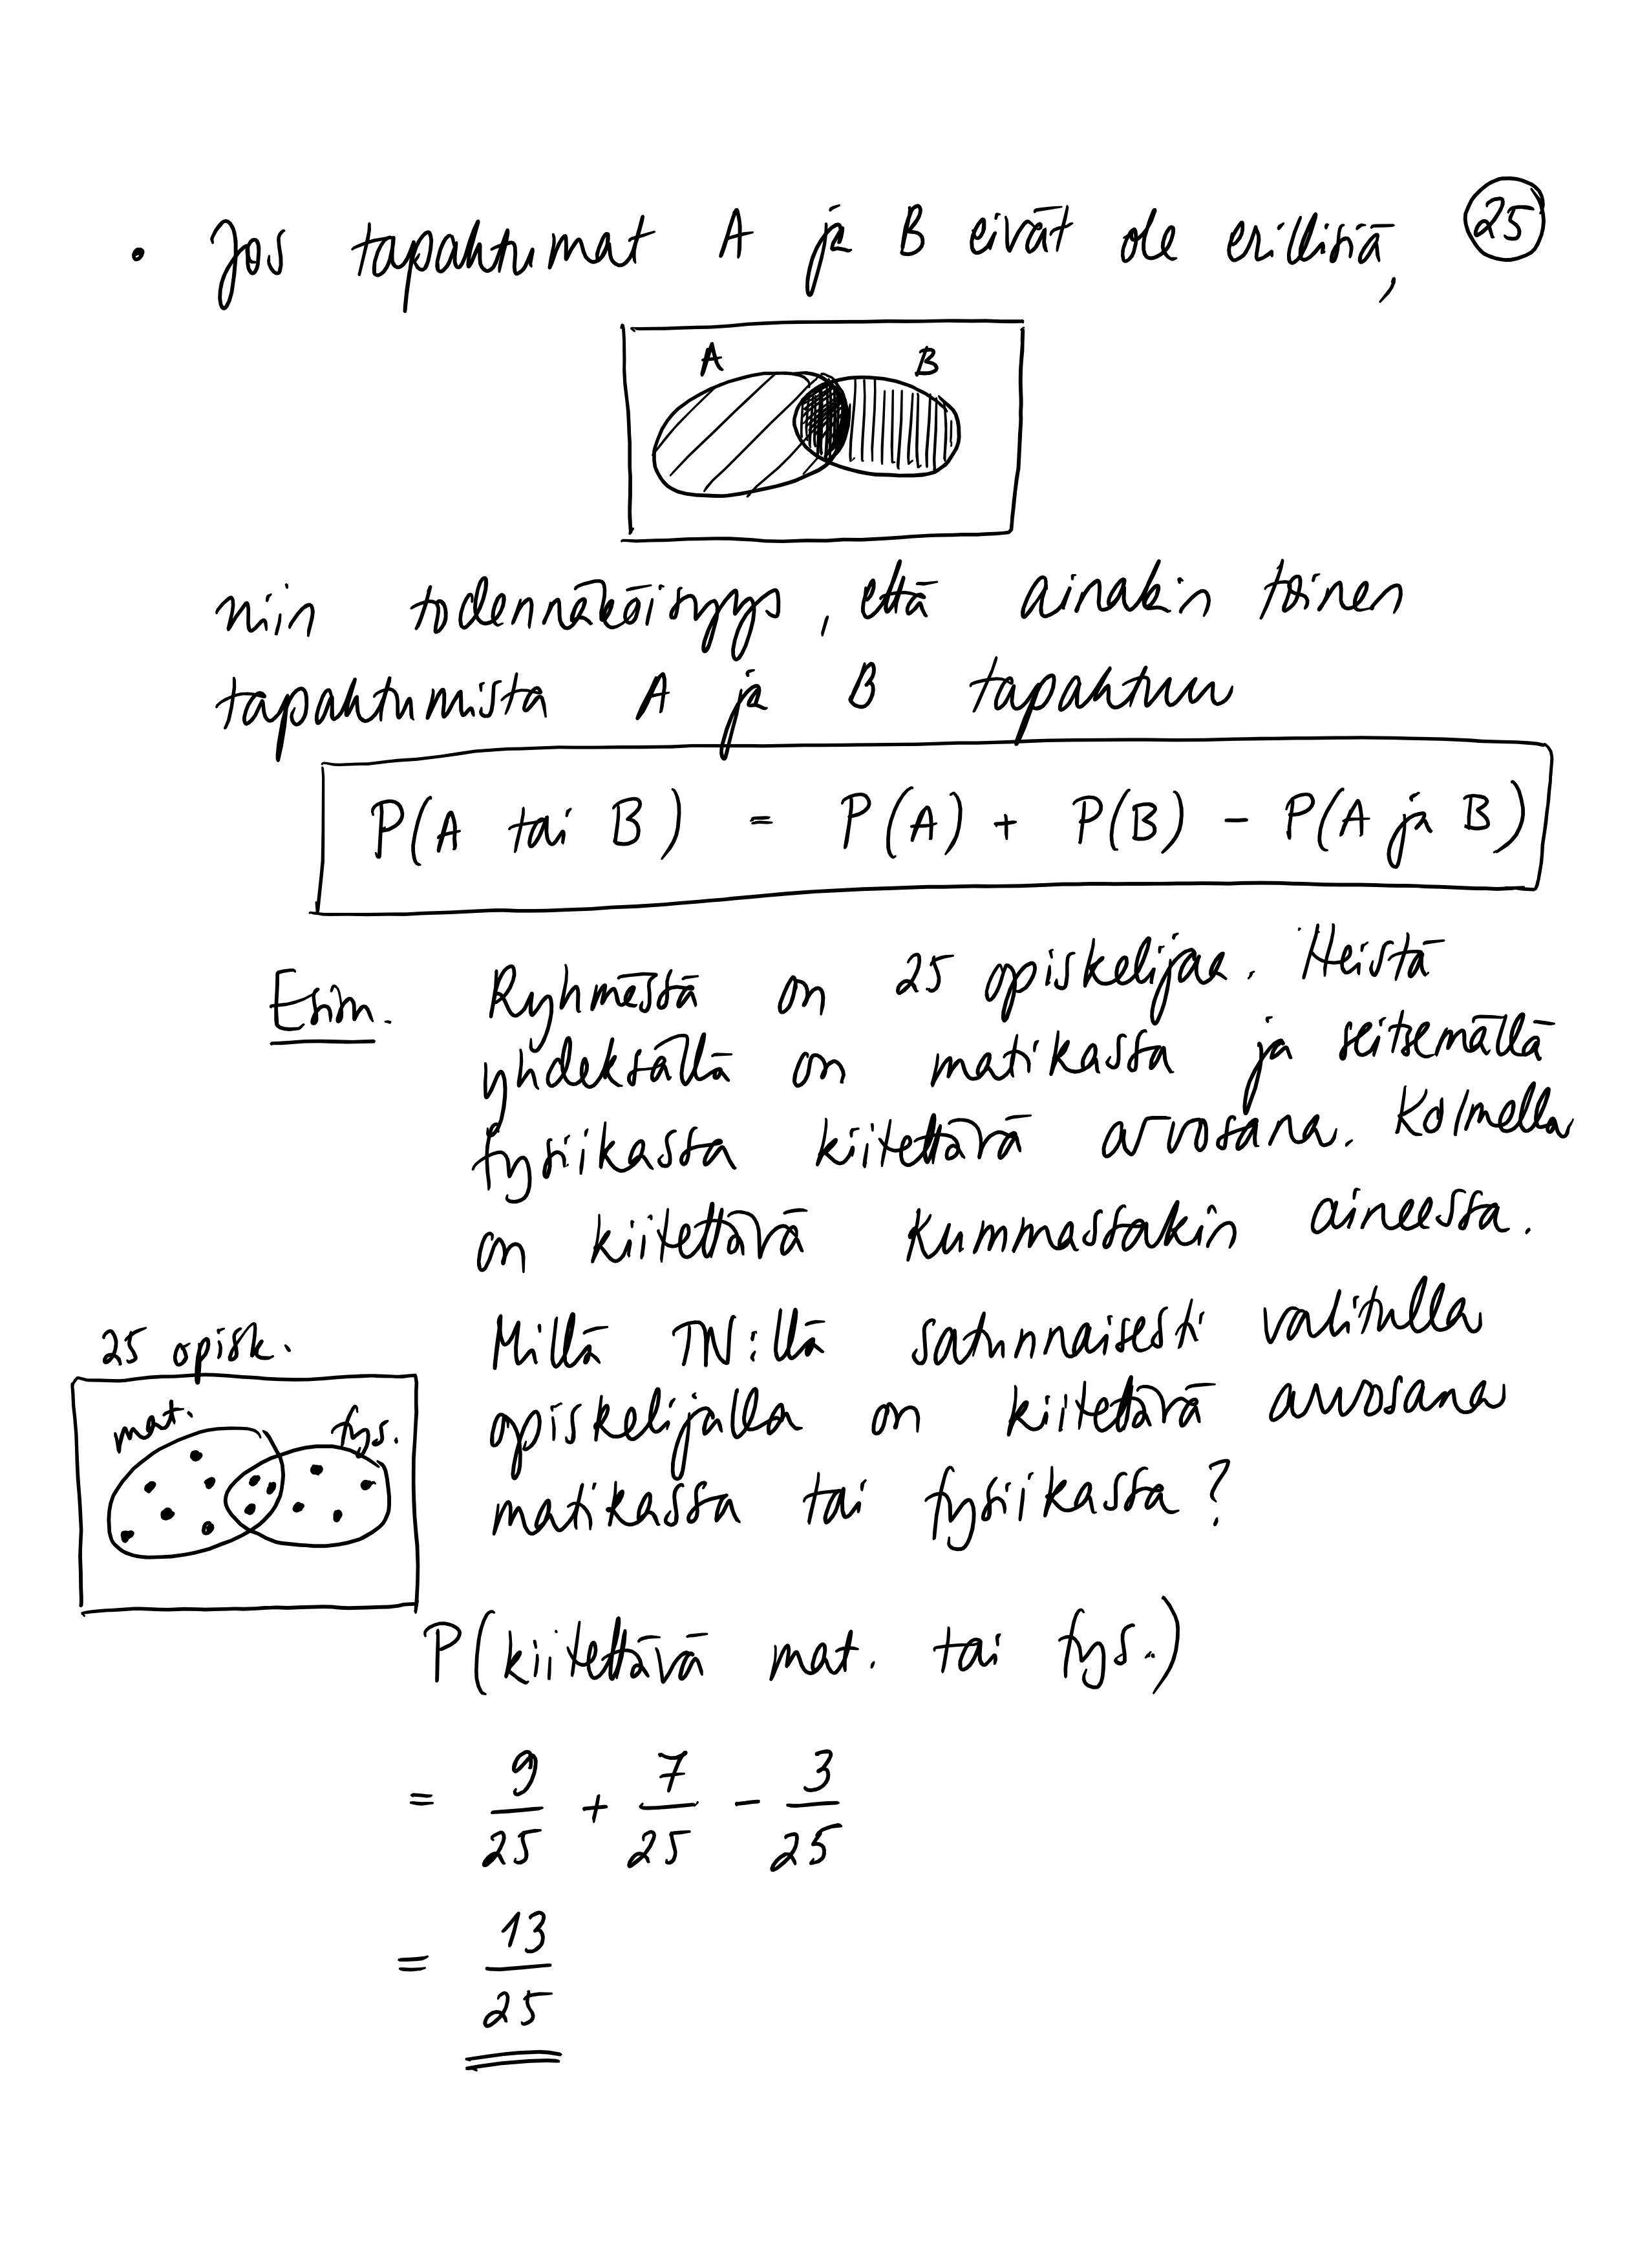 25
• Jos tapahtumat A ja B eivät ole erillisiä,
A B
niin todennäköisyys, että ainakin toinen
tapahtumista A ja B tapahtuu
P(A tai B) = P(A) + P(B) - P(A ja B)
Esim. Ryhmässä on 25 opiskelijaa. Heistä
yhdeksällä on matikassa ja seitsemällä
fysiikassa kiitettävä arvosana. Kolmella
on kiitettävä kummassakin aineessa.
Millä TN:llä satunnaisesti valitulla
opiskelijalla on kiitettävä arvosana
matikassa tai fysiikassa?
25 opisk.
mat. fys.
P(kiitettävä mat. tai fys.)
= 9/25 + 7/25 - 3/25
= 13/25